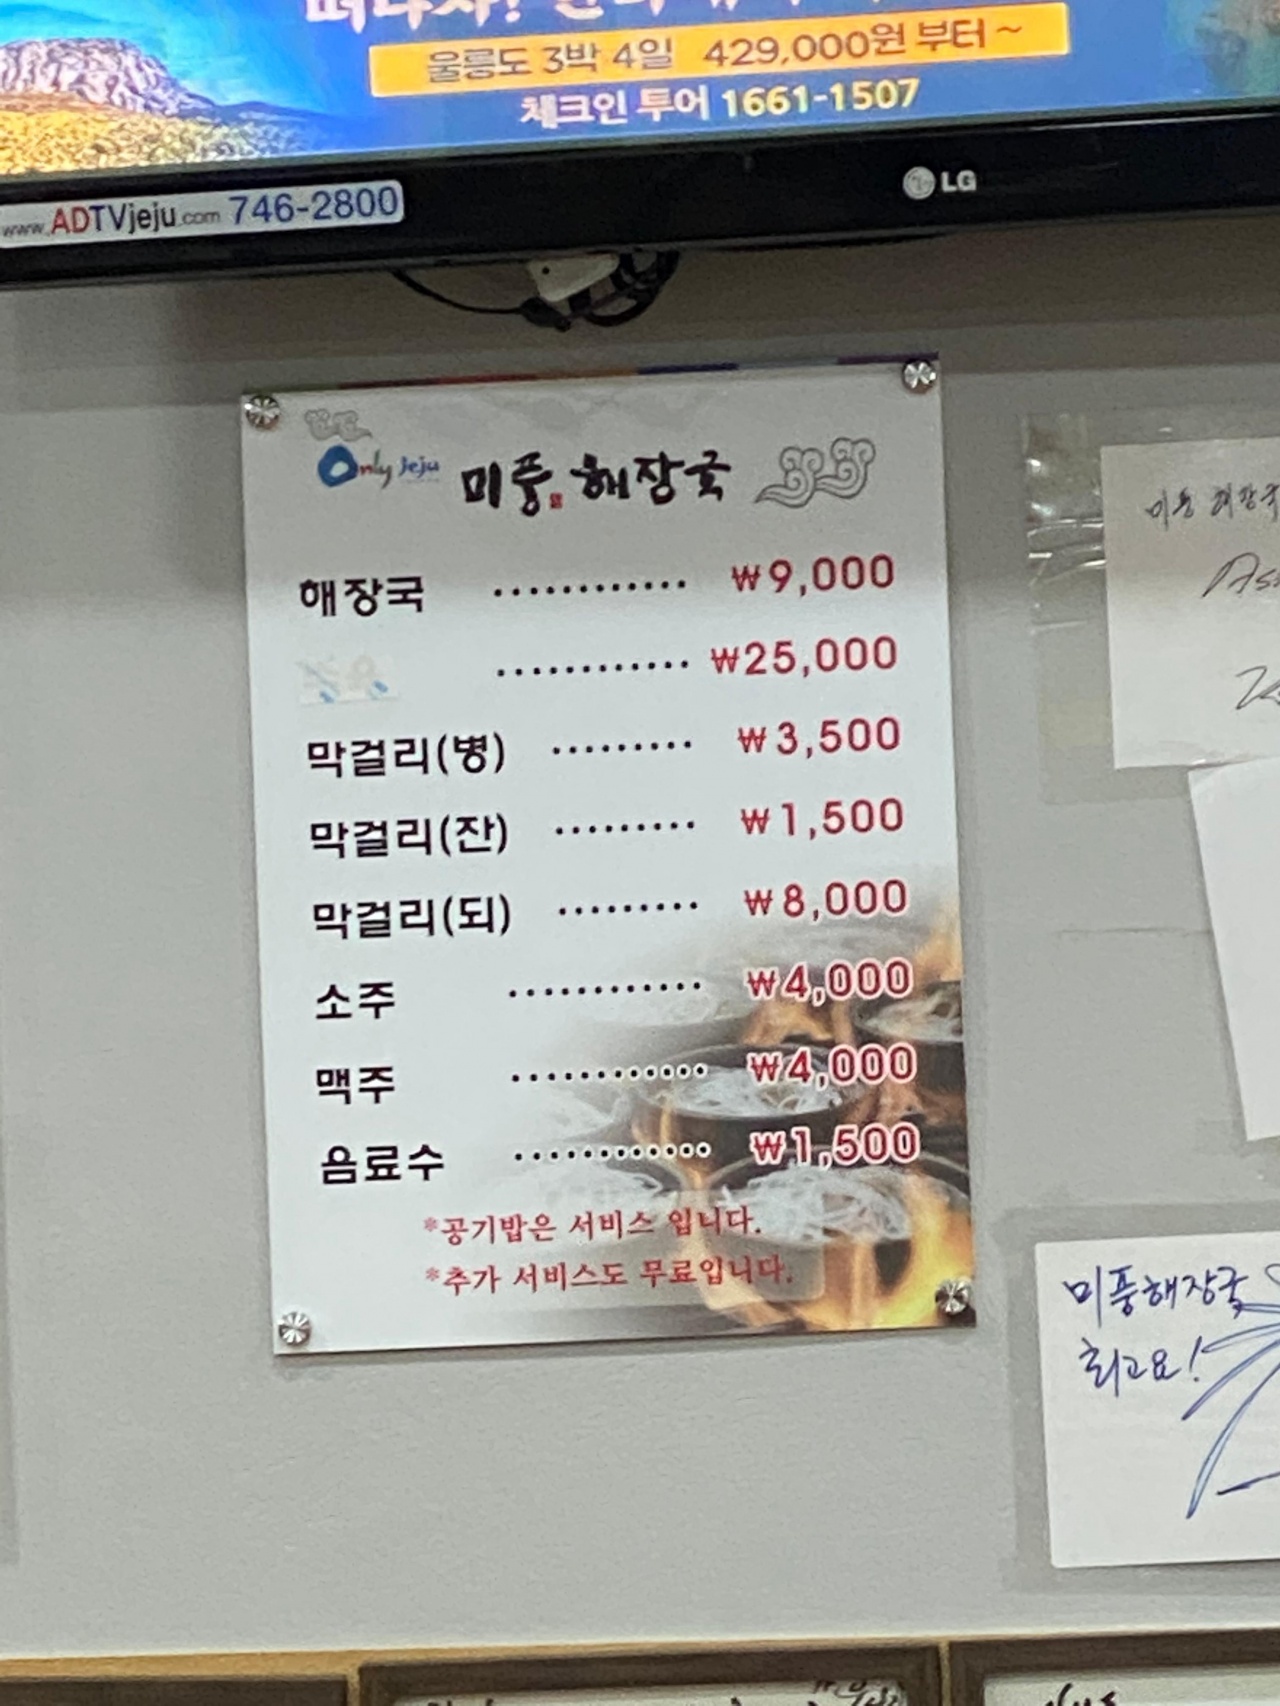 울릉도 3박 4일 429,000원 부터~
체크인 투어 1661-1507
www.ADTVjeju.com 746-2800
LG
Only Jeju 미풍 해장국
해장국 ············ ₩9,000
············ ₩25,000
막걸리(병) ········· ₩3,500
막걸리(잔) ········· ₩1,500
막걸리(되) ········· ₩8,000
소주 ············ ₩4,000
맥주 ············ ₩4,000
음료수 ············ ₩1,500
*공기밥은 서비스 입니다.
*추가 서비스도 무료입니다.
미풍 해장국
미풍해장국
최고요!